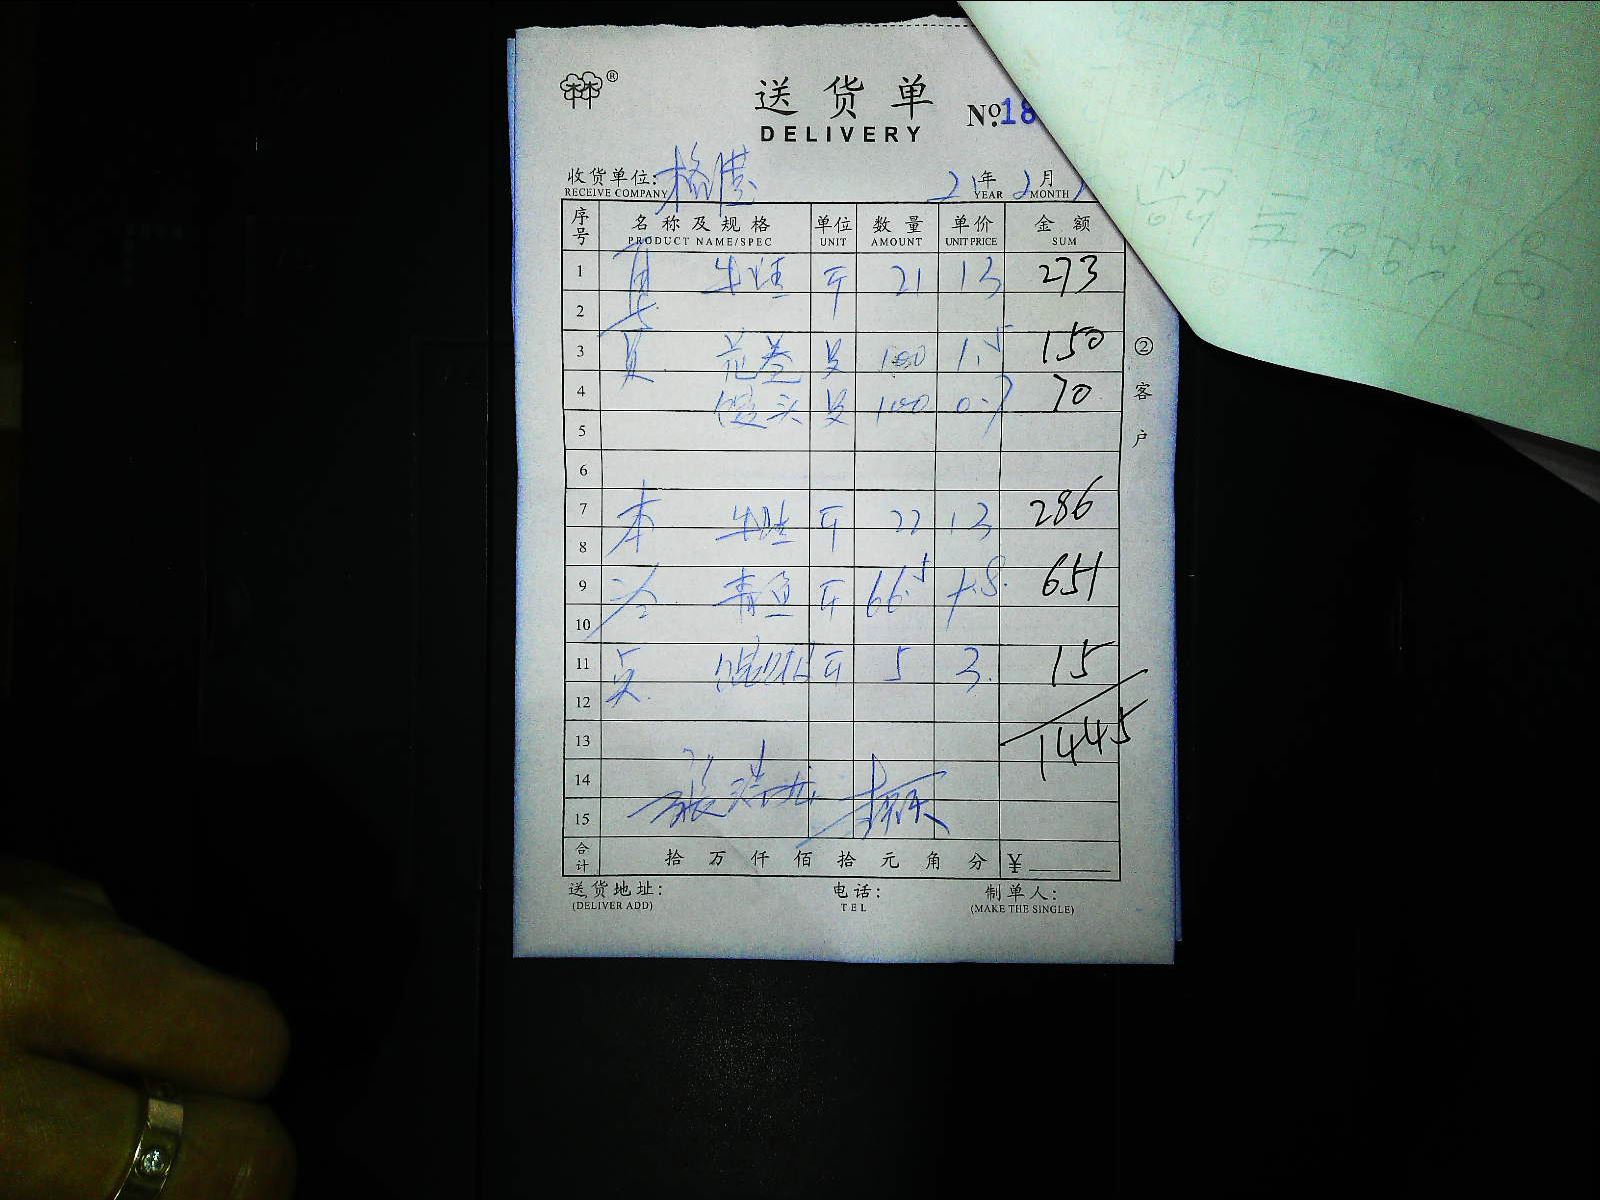 林®
送货单
DELIVERY
No.18
收货单位:
RECEIVE COMPANY
21年 2月
YEAR MONTH
序号 名称及规格 单位 数量 单价 金额
PRODUCT NAME/SPEC UNIT AMOUNT UNIT PRICE SUM
1 牛蛙 斤 21 13 273
2
3 花卷 只 100 1.5 150
4 馒头 只 100 0.7 70
5
6
7 本 牛蛙 斤 22 13 286
8
9 冷 青鱼 斤 66.5 9.8 651
10
11 斤 5 3. 15
12
13 1445
14
15
合计 拾 万 仟 佰 拾 元 角 分 ¥
②客户
送货地址: 电话: 制单人:
(DELIVER ADD) TEL (MAKE THE SINGLE)